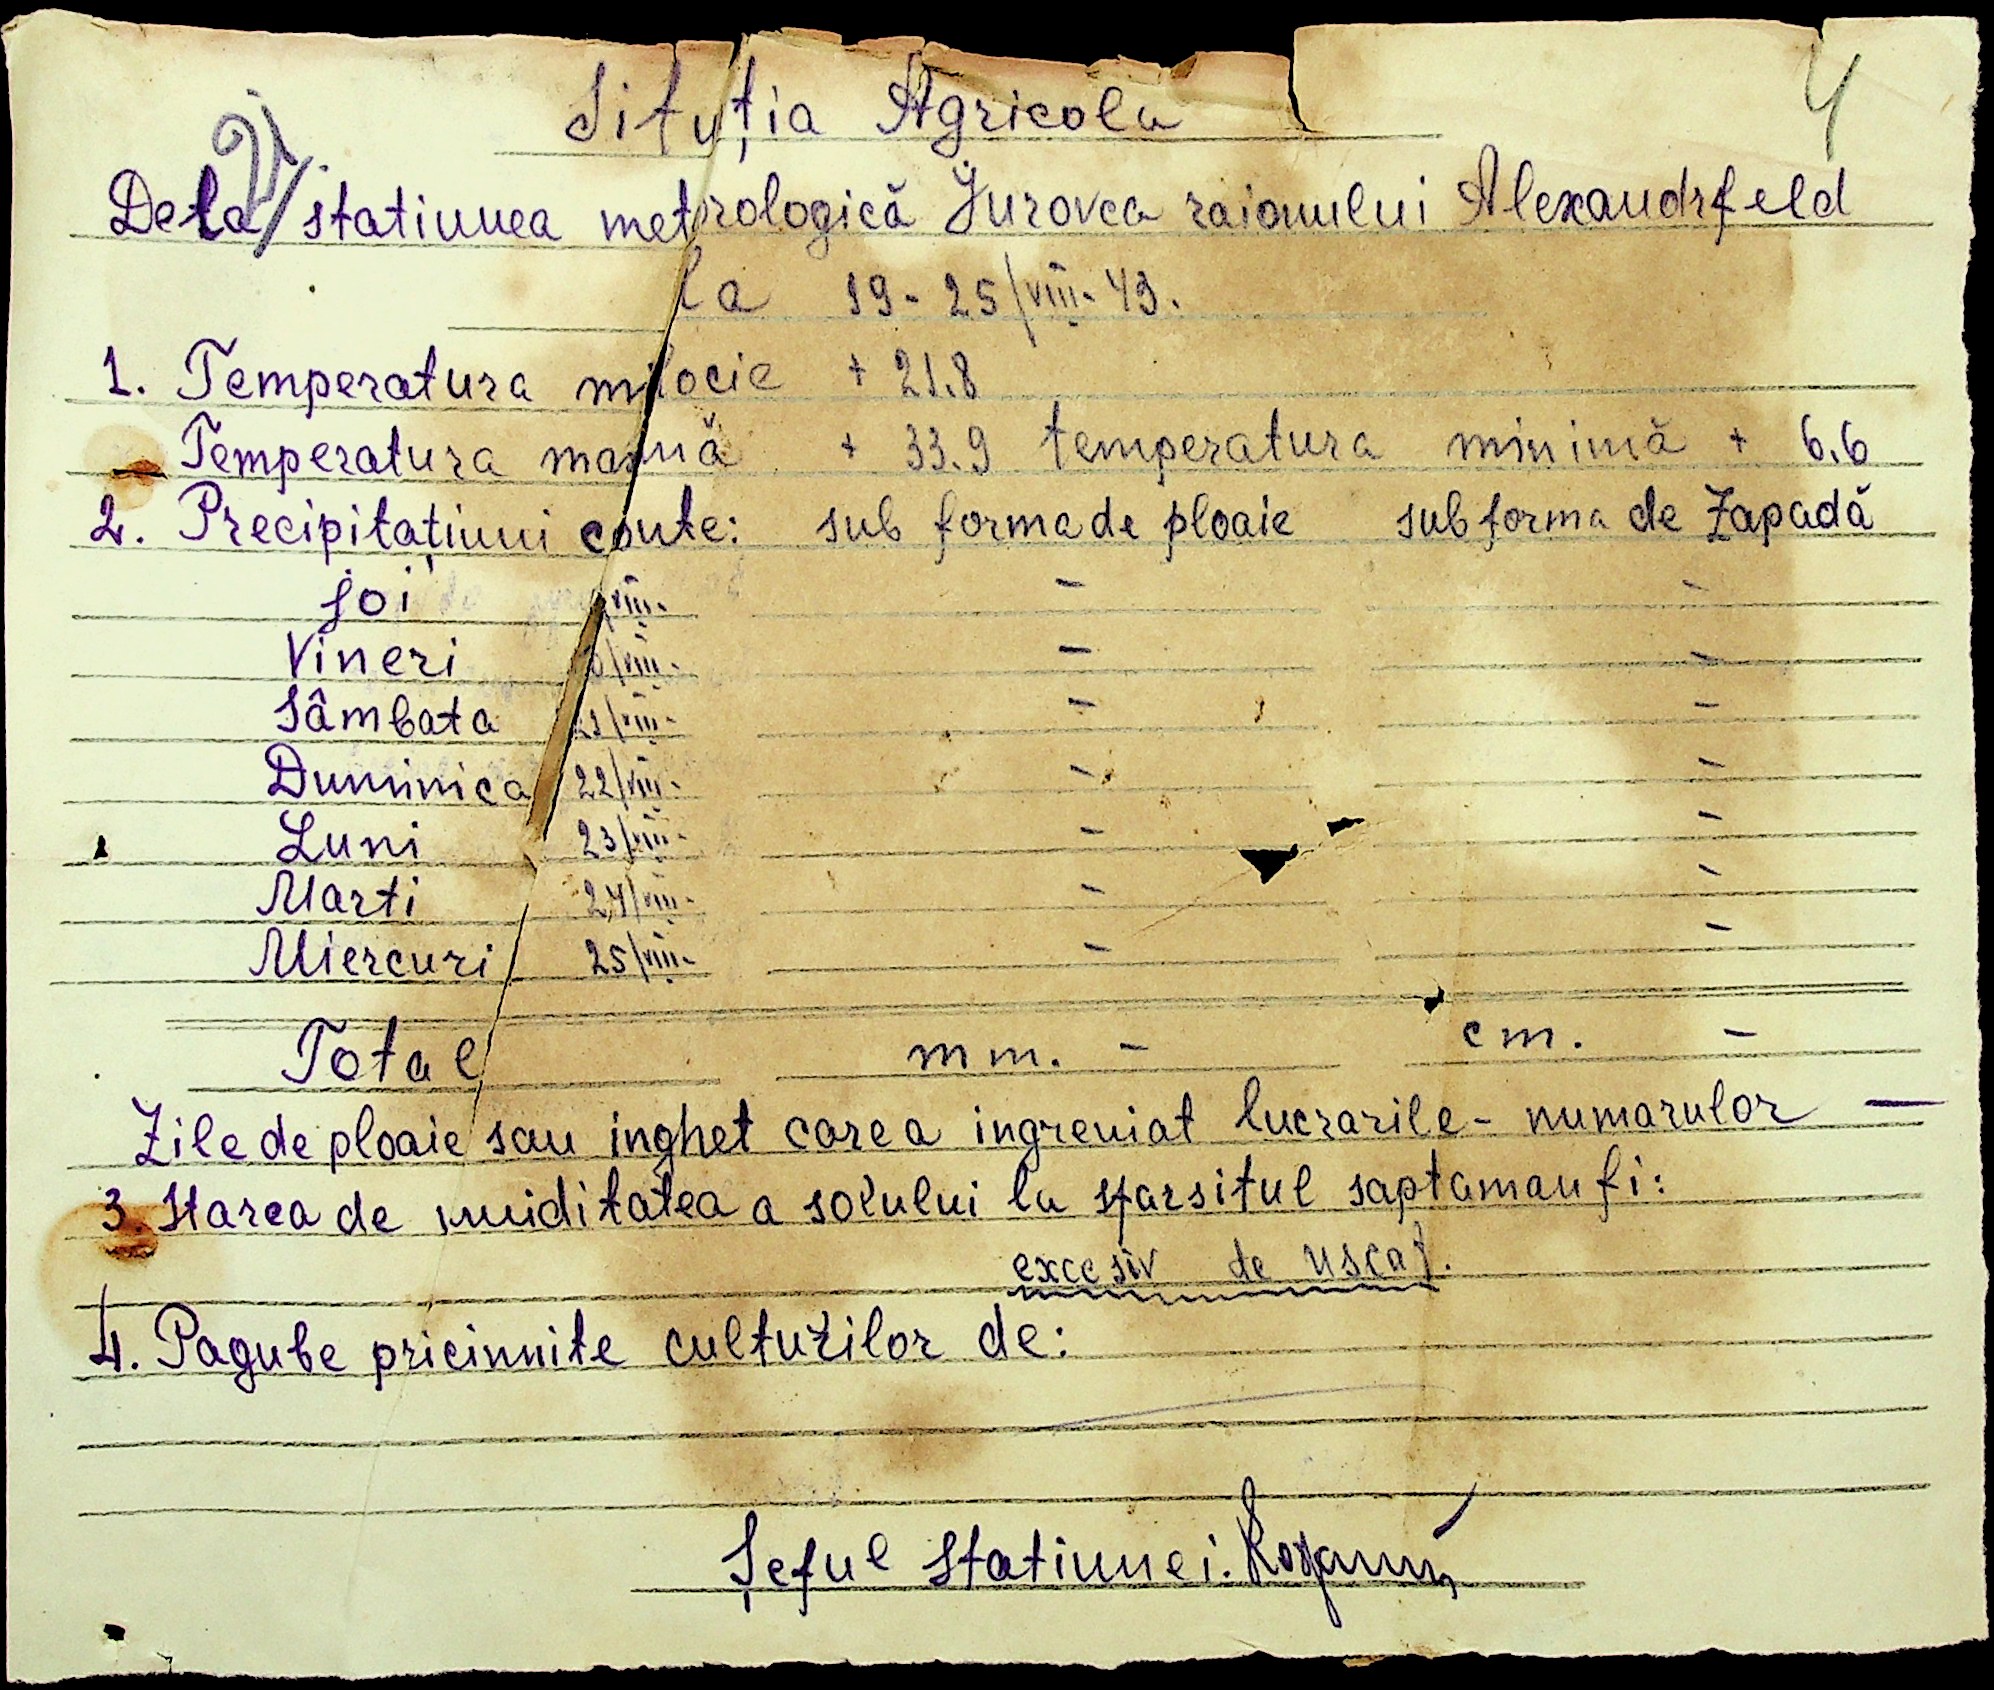 4
Situția Agricola
Dela statiunea metorologică Jurovca raionului Alexandrfeld
la 19-25/VIII-43.
1. Temperatura milocie + 21.8
Temperatura maximă + 33.9 temperatura minimă + 6.6
2. Precipitațiuni cǎute: sub forma de ploaie sub forma de Zapadă
Joi /VIII- - -
Vineri 20/VIII- - -
Sâmbata 21/VIII- - -
Duminica 22/VIII- - -
Luni 23/VIII- - -
Marti 24/VIII- - -
Miercuri 25/VIII- - -
Total mm. - cm. -
Zile de ploaie sau inghet care a ingreuiat lucrarile - numarulor —
3. Starea de umiditatea a solului la sfarsitul saptamanfi:
excesiv de uscat.
4. Pagube pricinnite culturilor de:
Șeful Statiunei.